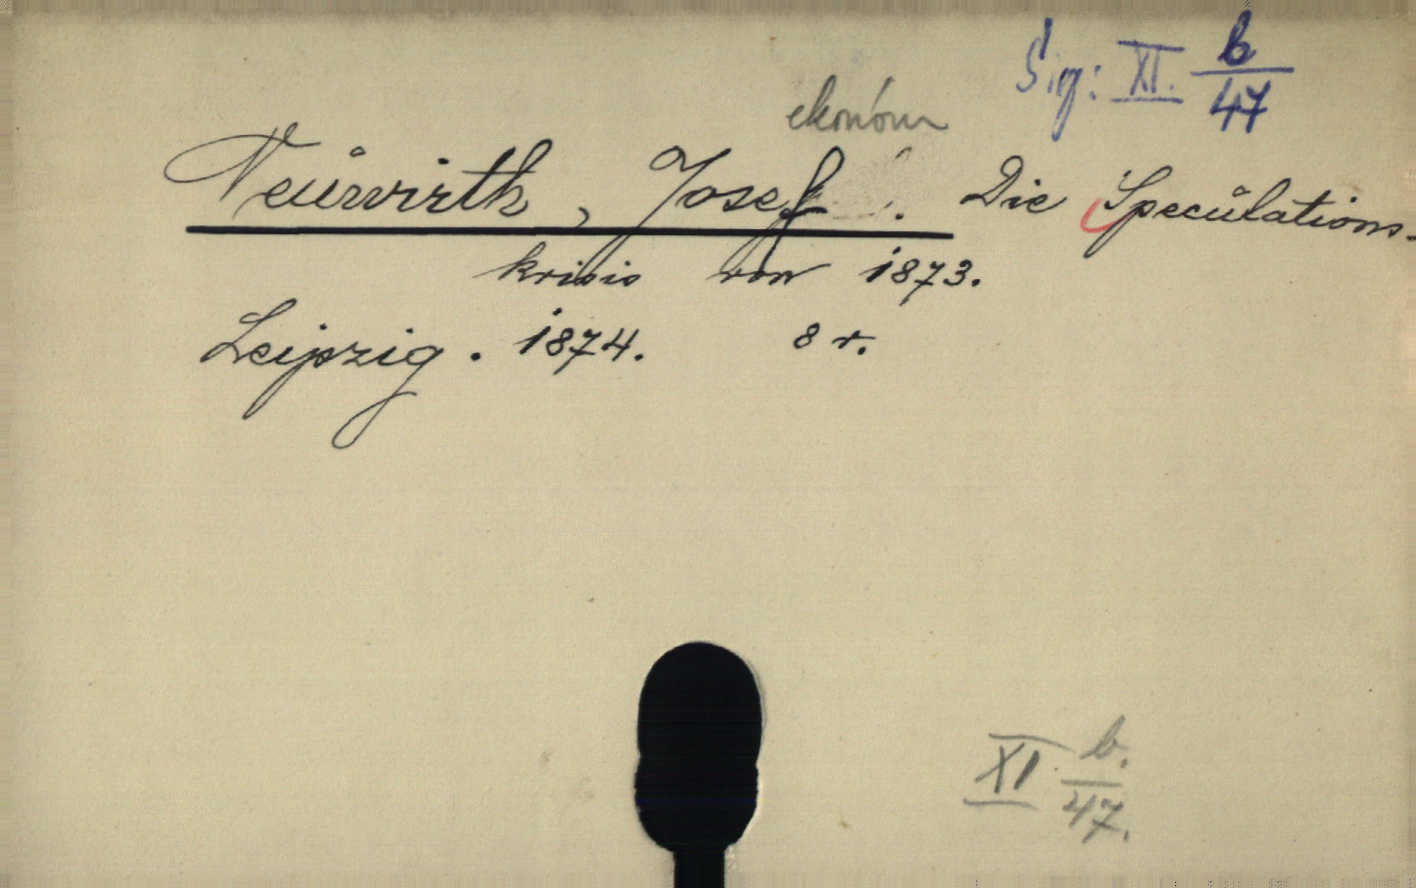 Sig: XI. b/47
ekonóm
Neuwirth, Josef. Die Speculations-
krisis von 1873.
Leipzig. 1874. 8 r.
XI. b./47.